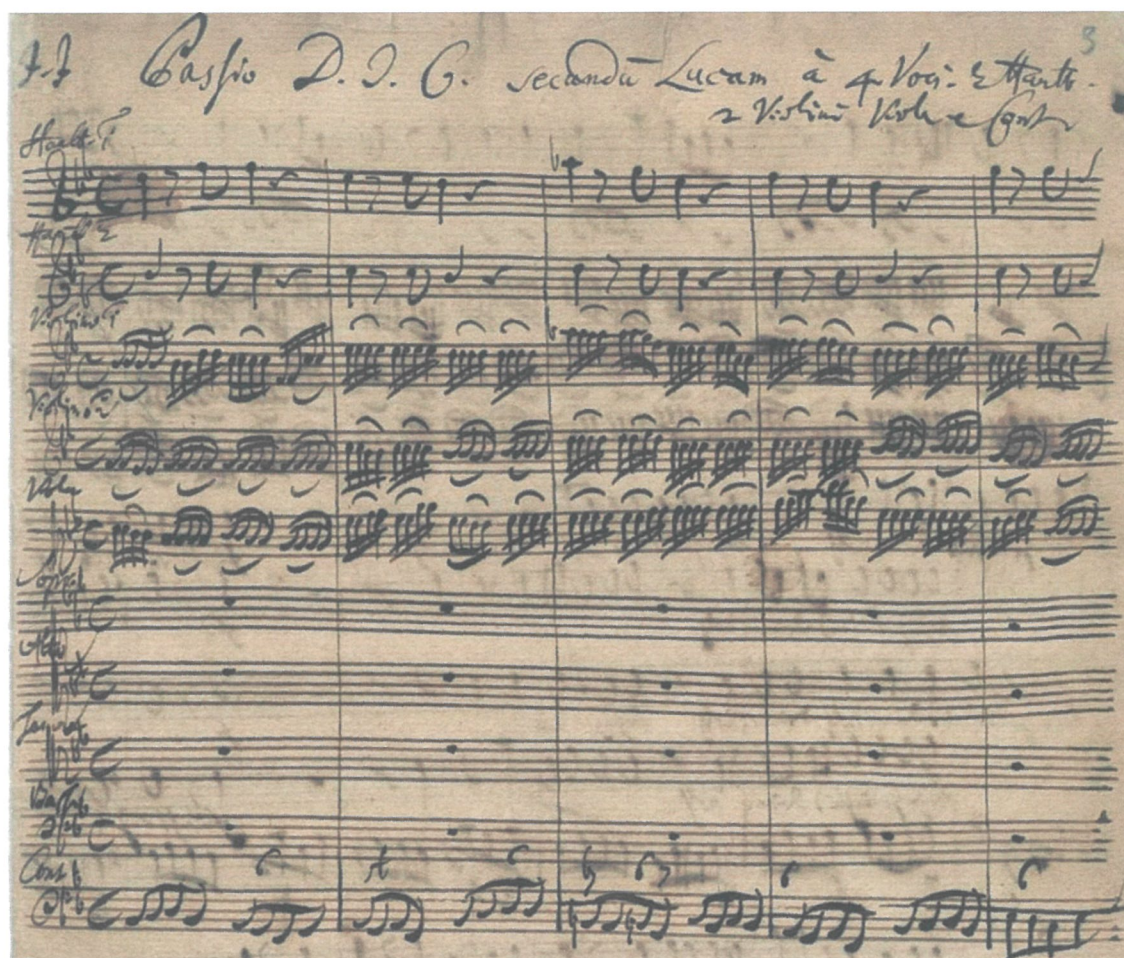 3
J. J. Passio D. J. C. secundū Lucam à 4 Voci. 2 Hautb.
2 Violini Viola e Cont.
Hautb. 1
Hautb 2
Violino 1
Violino 2
Viola
Alto
Cont